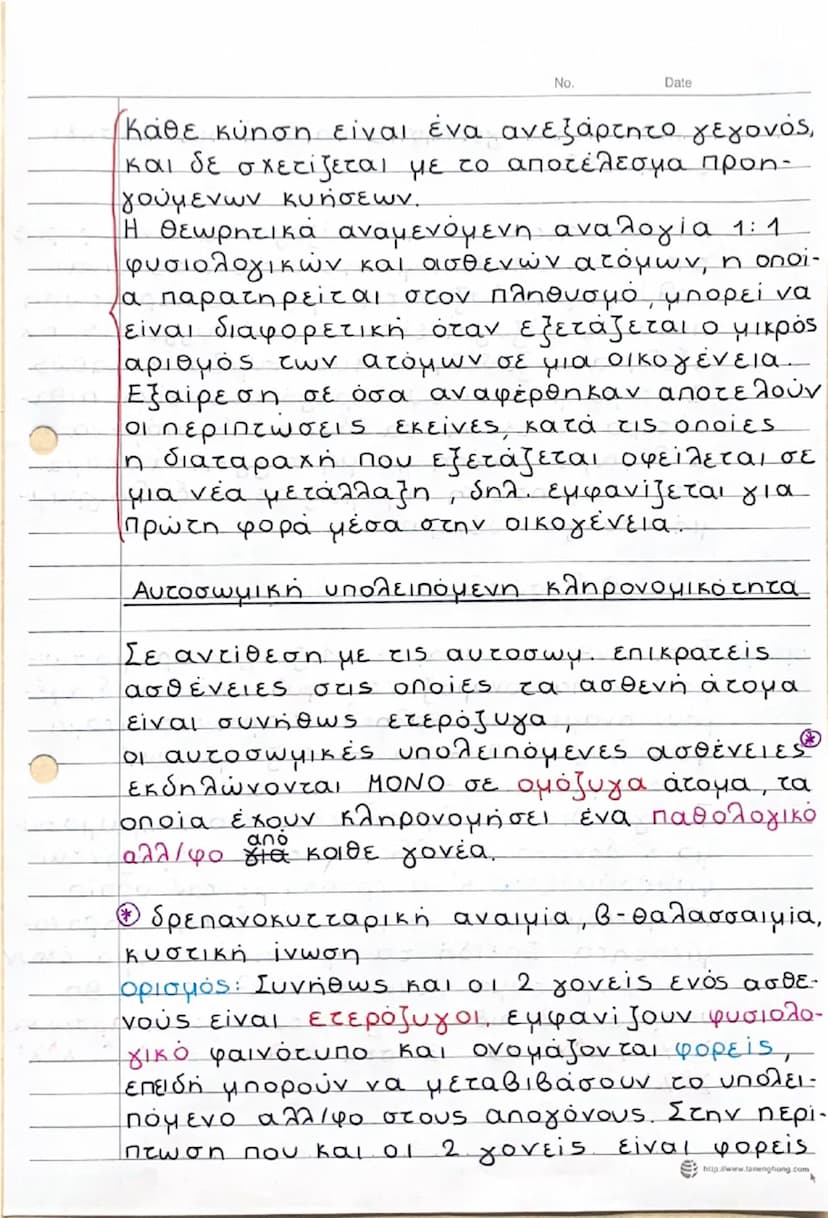 No. Date
Κάθε κύηση είναι ένα ανεξάρτητο γεγονός,
και δε σχετίζεται με το αποτέλεσμα προη-
γούμενων κυήσεων.
Η θεωρητικά αναμενόμενη αναλογία 1:1
φυσιολογικών και ασθενών ατόμων, η οποί-
α παρατηρείται στον πληθυσμό, μπορεί να
είναι διαφορετική όταν εξετάζεται ο μικρός
αριθμός των ατόμων σε μια οικογένεια.
Εξαίρεση σε όσα αναφέρθηκαν αποτελούν
οι περιπτώσεις εκείνες, κατά τις οποίες
η διαταραχή που εξετάζεται οφείλεται σε
μια νέα μετάλλαξη, δηλ. εμφανίζεται για
πρώτη φορά μέσα στην οικογένεια.
Αυτοσωμική υπολειπόμενη κληρονομικότητα
Σε αντίθεση με τις αυτοσωμ. επικρατείς
ασθένειες στις οποίες τα ασθενή άτομα
είναι συνήθως ετερόζυγα,
οι αυτοσωμικές υπολειπόμενες ασθένειες*
εκδηλώνονται ΜΟΝΟ σε ομόζυγα άτομα, τα
οποία έχουν κληρονομήσει ένα παθολογικό
αλλ/φο για από κάθε γονέα.
* δρεπανοκυτταρική αναιμία, β-θαλασσαιμία,
κυστική ίνωση
ορισμός: Συνήθως και οι 2 γονείς ενός ασθε-
νούς είναι ετερόζυγοι, εμφανίζουν φυσιολο-
γικό φαινότυπο και ονομάζονται φορείς,
επειδή μπορούν να μεταβιβάσουν το υπολει-
πόμενο αλλ/φο στους απογόνους. Στην περί-
πτωση που και οι 2 γονείς είναι φορείς